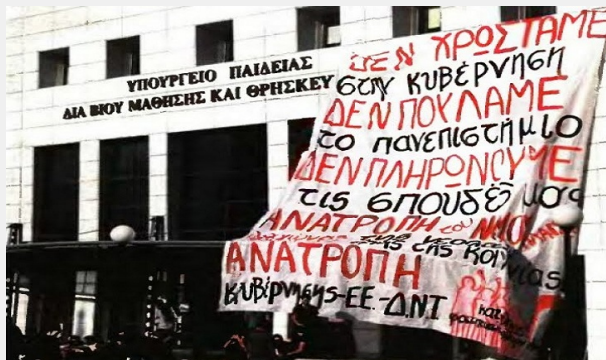 ΥΠΟΥΡΓΕΙΟ ΠΑΙΔΕΙΑΣ
ΔΙΑ ΒΙΟΥ ΜΑΘΗΣΗΣ ΚΑΙ ΘΡΗΣΚΕΥ
ΔΕΝ ΧΡΩΣΤΑΜΕ
στην ΚΥΒΕΡΝΗΣΗ
ΔΕΝ ΠΟΥΛΑΜΕ
το ΠΑΝΕΠΙΣΤΗΜΙΟ
ΔΕΝ ΠΛΗΡΩΝΟΥΜΕ
τις σπουδές μας
ΑΝΑΤΡΟΠΗ του ΝΜΟΥ
της κοινωνίας
ΑΝΑΤΡΟΠΗ
ΚΥΒέρνησης-ΕΕ-ΔΝΤ